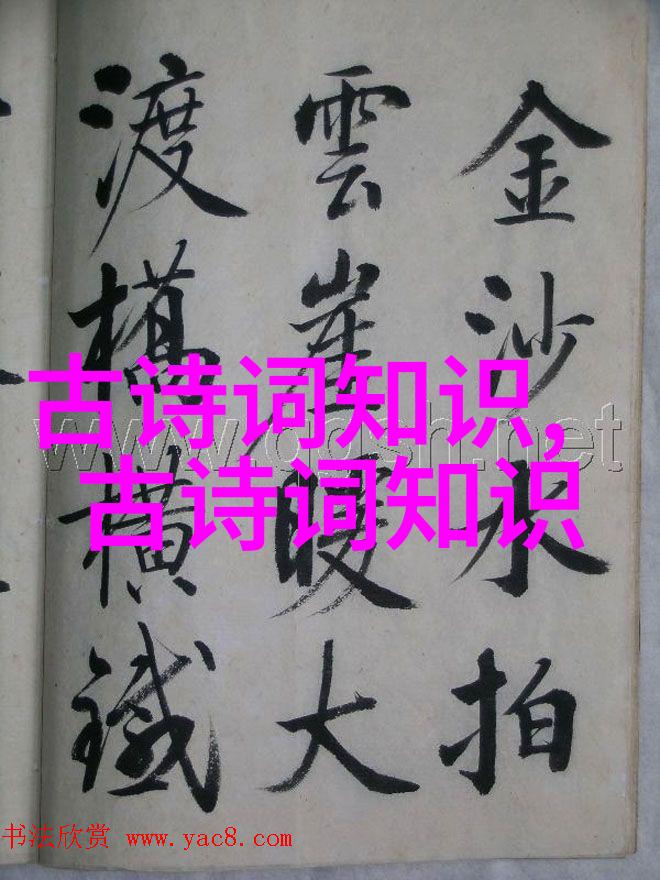 金沙水拍
雲崖暖大
渡橋横鐵
古诗词知识,
古诗词知识
书法欣赏 www.yac8.com